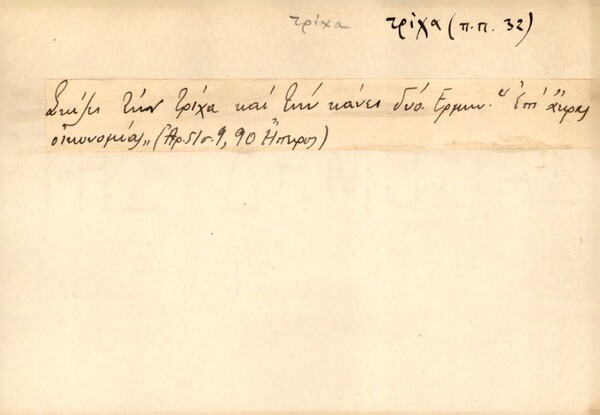 τρίχα τρίχα (π.π. 32)
Σκίζει τήν τρίχα καί τήν κάνει δύο. Ερμην. "Επί ἄκρας
οἰκονομίας,, (Ἀρ.51 σ. 9, 90 Ἤπειρος)